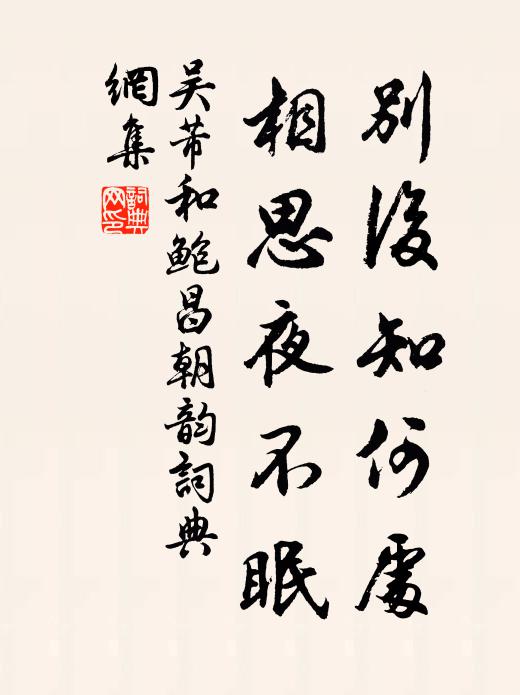 別後知何處
相思夜不眠
吳芾和鮑昌朝韵詞典
網集
詞典
网印